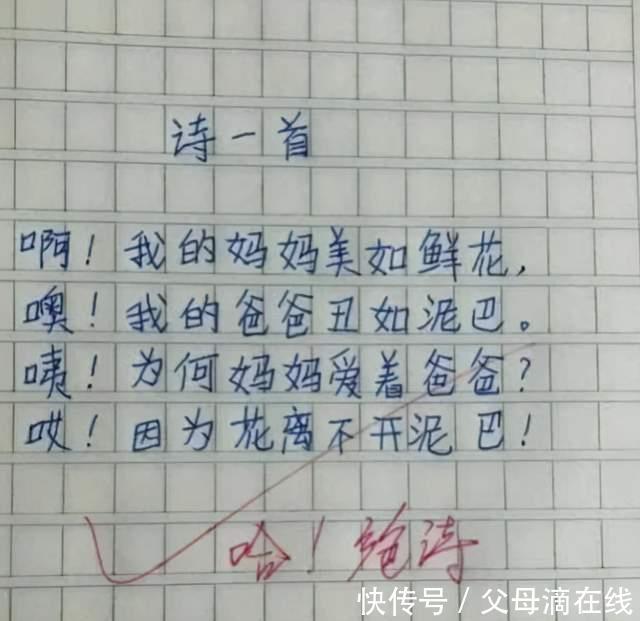 诗一首
啊！我的妈妈美如鲜花，
噢！我的爸爸丑如泥巴。
咦！为何妈妈爱着爸爸？
哎！因为花离不开泥巴！
哈！绝诗
快传号／父母滴在线